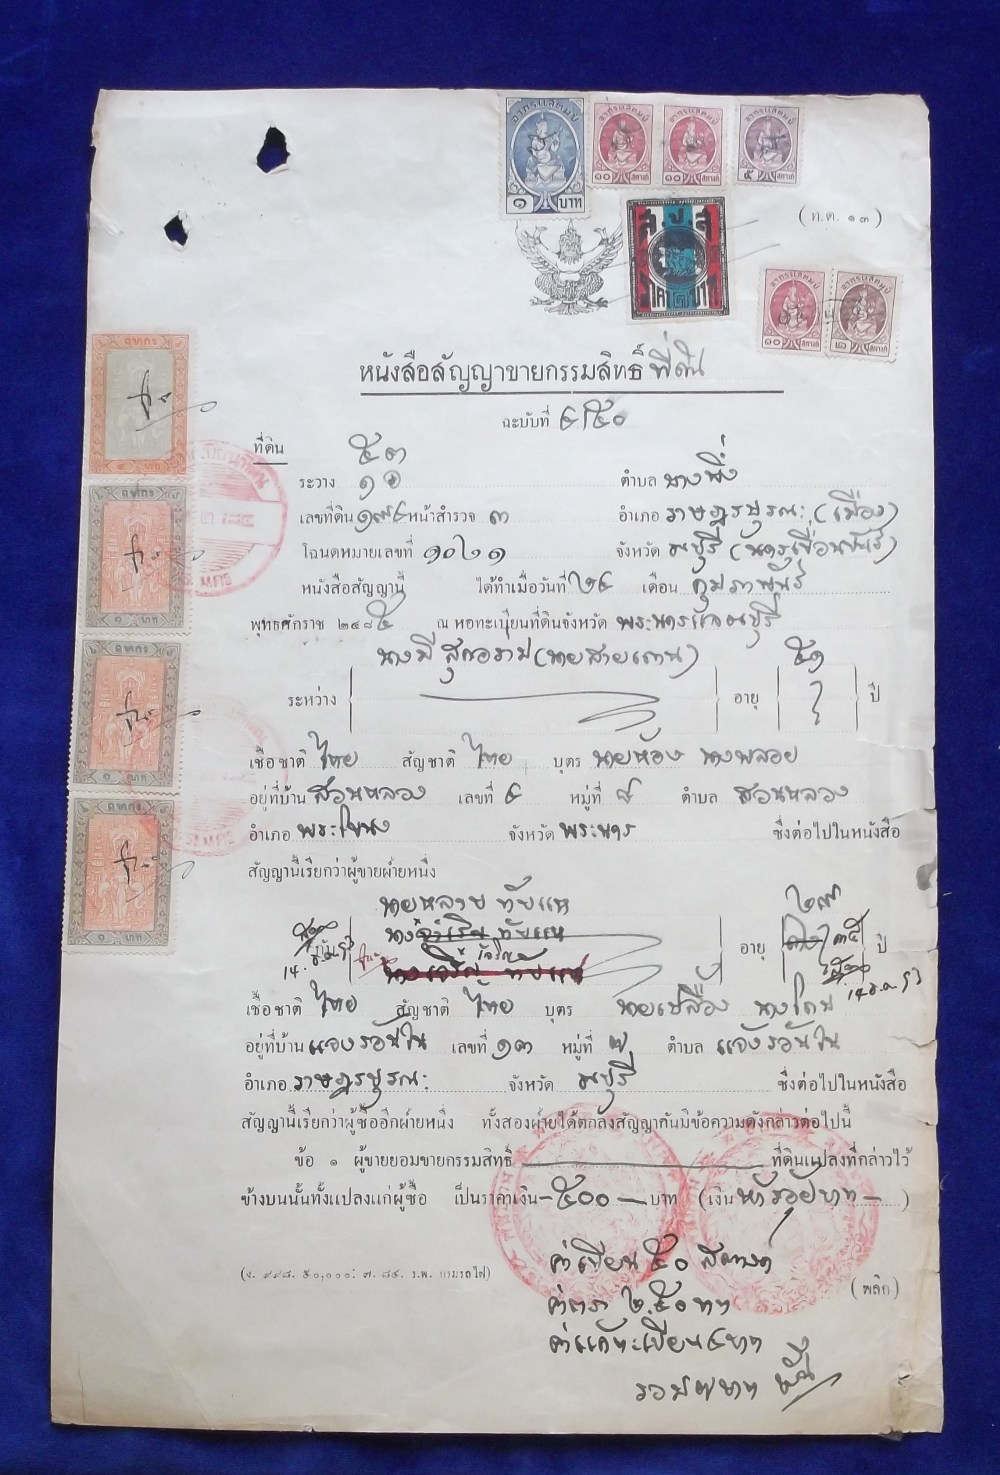 อากรแสตมป์
๑ บาท
อากรแสตมป์
๑๐ สตางค์
อากรแสตมป์
๑๐ สตางค์
อากรแสตมป์
๕ สตางค์
ส.ป.ส
(ท.ด. ๑๓)
อากรแสตมป์
๑๐ สตางค์
อากรแสตมป์
๒ สตางค์
หนังสือสัญญาขายกรรมสิทธิ์ ที่ดิน
ฉะบับที่
ที่ดิน ๕๓
ระวาง ๑๑ ตำบล บางผึ้ง
เลขที่ดิน ๑๙๔ หน้าสำรวจ ๓ อำเภอ ราษฎรบูรณะ (เมือง)
โฉนดหมายเลขที่ ๑๐๒๑ จังหวัด ธนบุรี (นครเขื่อนขันธ์)
หนังสือสัญญานี้ ได้ทำเมื่อวันที่ ๒๔ เดือน กุมภาพันธ์
พุทธศักราช ๒๔๘๕ ณ หอทะเบียนที่ดินจังหวัด พระนครและธนบุรี
นางมี
ระหว่าง อายุ ๕๑ ปี
เชื้อชาติ ไทย สัญชาติ ไทย บุตร นายห้อง นางพลอย
อยู่ที่บ้าน สวนหลวง เลขที่ ๔ หมู่ที่ ๘ ตำบล สวนหลวง
อำเภอ พระโขนง จังหวัด พระนคร ซึ่งต่อไปในหนังสือ
สัญญานี้เรียกว่าผู้ขายฝ่ายหนึ่ง
นายหลาบ ทับแห ๒๙
นาง ทับแห อายุ ๓๕ ปี
เชื้อชาติ ไทย สัญชาติ ไทย บุตร นายเปลื้อง
อยู่ที่บ้าน แจงรอนใน เลขที่ ๑๓ หมู่ที่ ๗ ตำบล แจงรอนใน
อำเภอ ราษฎรบูรณะ จังหวัด ธนบุรี ซึ่งต่อไปในหนังสือ
สัญญานี้เรียกว่าผู้ซื้ออีกฝ่ายหนึ่ง ทั้งสองฝ่ายได้ตกลงสัญญากันมีข้อความดังกล่าวต่อไปนี้
ข้อ ๑ ผู้ขายยอมขายกรรมสิทธิ์ ที่ดินแปลงที่กล่าวไว้
ข้างบนนั้นทั้งแปลงแก่ผู้ซื้อ เป็นราคาเงิน -๕๐๐- บาท (เงิน ห้าร้อยบาท -)
ค่าเขียน ๕๐ สตางค์
(ง. ๙๙๘. ๕๐,๐๐๐: ๗. ๘๔. ร.พ. กรมรถไฟ) (พลิก)
ค่าตรา ๒.๕๐ บาท
ค่าแก้ทะเบียน ๔ บาท
รวม ๗ บาท